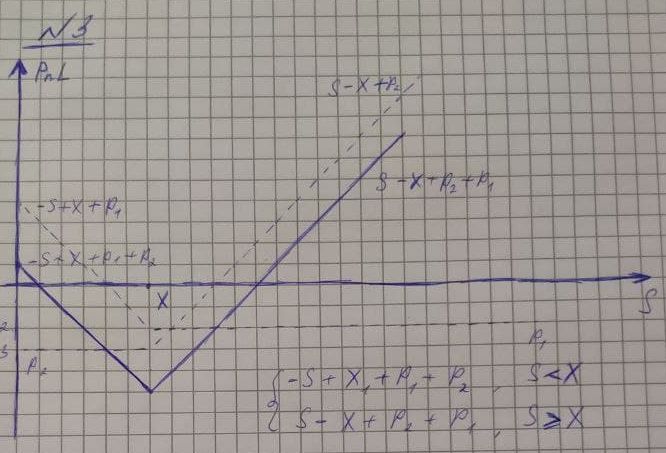 N3
PnL
S-X+P2
-S+X+P1
S-X+P2+P1
-S+X+P1+P2
X
S
2
3
P1
P2
-S+X+P1+P2, S<X
S-X+P2+P1, S⩾X